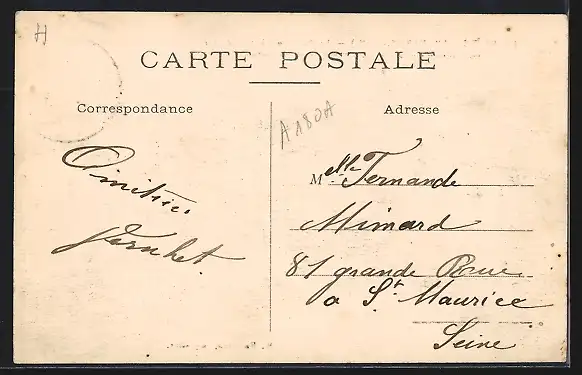 H
CARTE POSTALE
Correspondance
Amitiés
Adresse
A180A
Melle Fernande
Mimard
81 grande Rue
a St Maurice
Seine